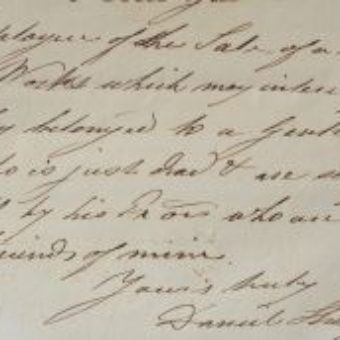 of the Sale of a
Works which may
belonged to a
is just dead & are
by his Exors who are
friends of mine.
Yours truly
Daniel